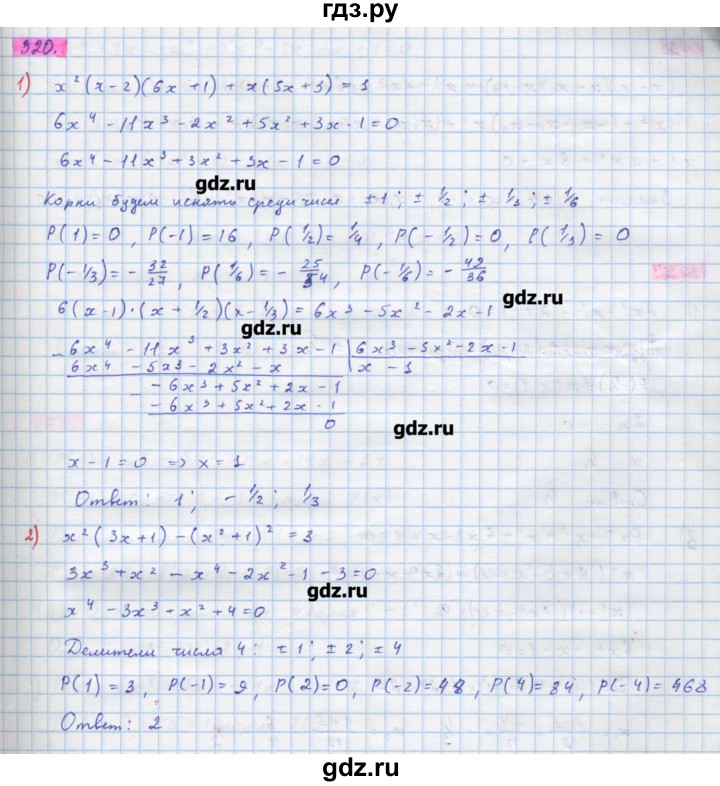 гдз.ру
320.
1) x² (x - 2)(6x + 1) + x(5x + 3) = 1
6x⁴ - 11x³ - 2x² + 5x² + 3x - 1 = 0
6x⁴ - 11x³ + 3x² + 3x - 1 = 0
gdz.ru
Корни будем искать среди чисел ±1; ± 1/2; ± 1/3; ± 1/6
P(1) = 0, P(-1) = 16, P(1/2) = 1/4, P(-1/2) = 0, P(1/3) = 0
P(-1/3) = - 32/27, P(1/6) = - 25/54, P(-1/6) = - 42/36
gdz.ru
6(x-1)·(x + 1/2)(x - 1/3) = 6x³ - 5x² - 2x - 1
gdz.ru
- 6x⁴ - 11x³ + 3x² + 3x - 1 | 6x³ - 5x² - 2x - 1
6x⁴ - 5x3 - 2x² - x | x - 1
- - 6x³ + 5x² + 2x - 1
- 6x³ + 5x² + 2x - 1
0
gdz.ru
x - 1 = 0 ⇒ x = 1
Ответ: 1; - 1/2; 1/3
2) x² (3x + 1) - (x² + 1)² = 3
3x³ + x² - x⁴ - 2x² - 1 - 3 = 0
gdz.ru
x⁴ - 3x³ + x² + 4 = 0
Делители числа 4: ±1; ±2; ±4
P(1) = 3, P(-1) = 9, P(2) = 0, P(-2) = 48, P(4) = 84, P(-4) = 468
Ответ: 2
gdz.ru